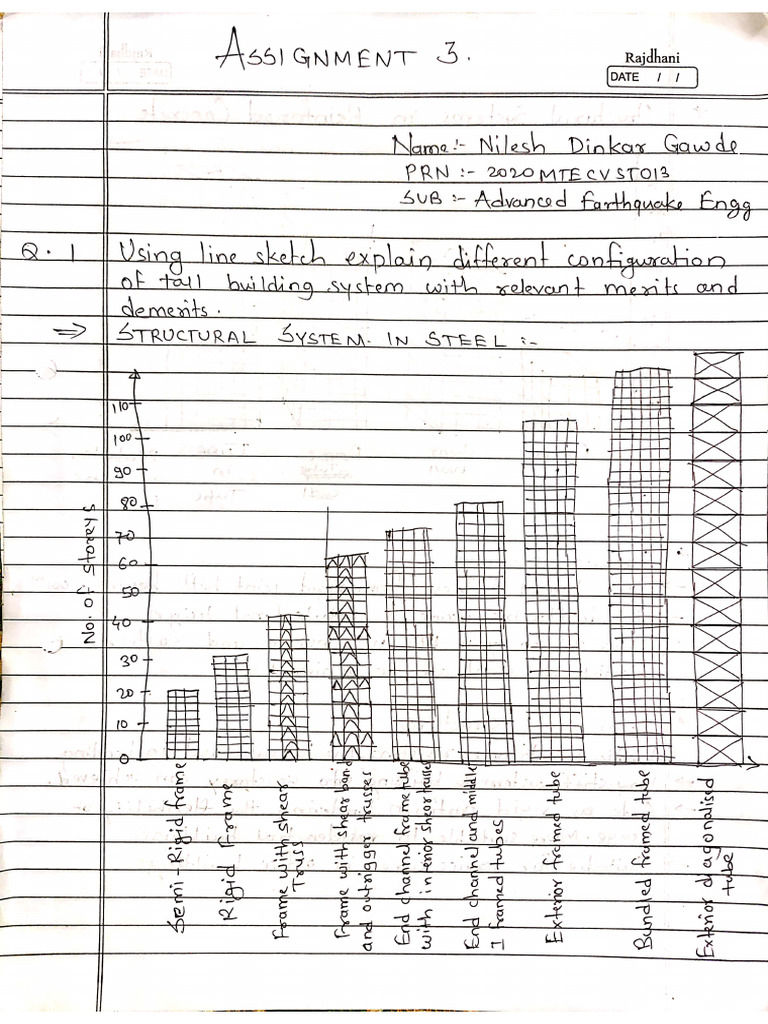 ASSIGNMENT 3.
Rajdhani
DATE / /
Name:- Nilesh Dinkar Gawde
PRN :- 2020MTECVST013
SUB :- Advanced Earthquake Engg
Q.1 Using line sketch explain different configuration
of tall building system with relevant merits and
demerits.
⇒ STRUCTURAL SYSTEM. IN STEEL :-
No. of Storeys
110
100
90
80
70
60
50
40
30
20
10
0
Semi-Rigid frame
Rigid Frame
Frame with shear
Truss
Frame with shear band
and outrigger trusses
End channel frame tube
with interior shear trusses
End channel and middle
I framed tubes
Exterior framed tube
Bundled framed tube
Exterior diagonalised
tube